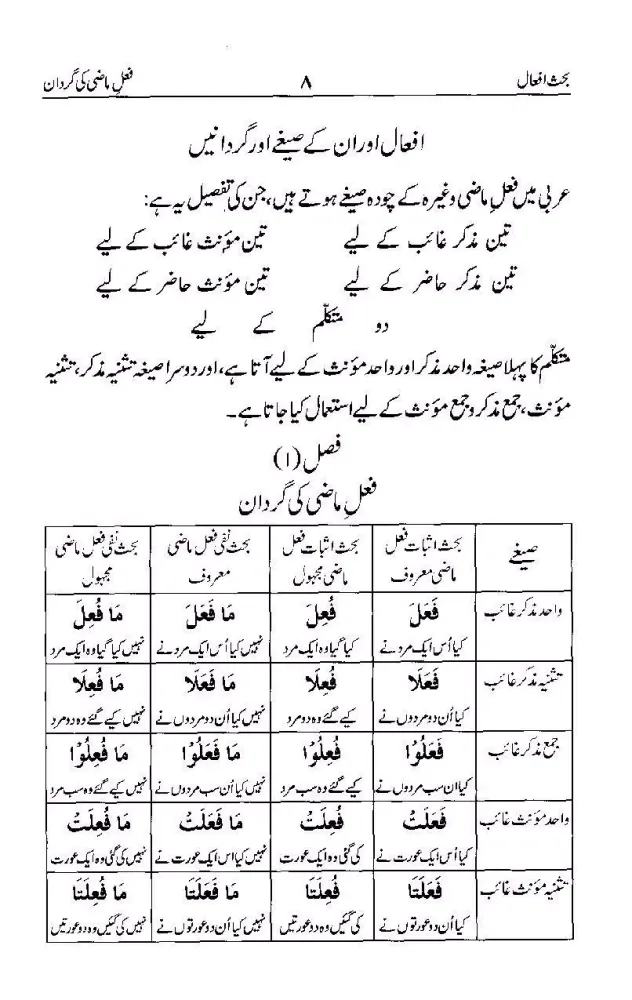 بحث افعال ۸ فعلِ ماضی کی گردان
افعال اور ان کے صیغے اور گردانیں
عربی میں فعلِ ماضی وغیرہ کے چودہ صیغے ہوتے ہیں، جن کی تفصیل یہ ہے:
تین مذکر غائب کے لیے تین مؤنث غائب کے لیے
تین مذکر حاضر کے لیے تین مؤنث حاضر کے لیے
دو متکلّم کے لیے
متکلّم کا پہلا صیغہ واحد مذکر اور واحد مؤنث کے لیے آتا ہے، اور دوسرا صیغہ تثنیہ مذکر، تثنیہ
مؤنث، جمع مذکر و جمع مؤنث کے لیے استعمال کیا جاتا ہے۔
فصل (۱)
فعلِ ماضی کی گردان
صیغے بحث اثبات فعل بحث اثبات فعل بحث نفی فعل ماضی بحث نفی فعل ماضی
ماضی معروف ماضی مجہول معروف مجہول
واحد مذکر غائب فَعَلَ فُعِلَ مَا فَعَلَ مَا فُعِلَ
کیا اُس ایک مرد نے کیا گیا وہ ایک مرد نہیں کیا اُس ایک مرد نے نہیں کیا گیا وہ ایک مرد
تثنیہ مذکر غائب فَعَلَا فُعِلَا مَا فَعَلَا مَا فُعِلَا
کیا اُن دو مردوں نے کیے گئے وہ دو مرد نہیں کیا اُن دو مردوں نے نہیں کیے گئے وہ دو مرد
جمع مذکر غائب فَعَلُوْا فُعِلُوْا مَا فَعَلُوْا مَا فُعِلُوْا
کیا ان سب مردوں نے کیے گئے وہ سب مرد نہیں کیا اُن سب مردوں نے نہیں کیے گئے وہ سب مرد
واحد مؤنث غائب فَعَلَتْ فُعِلَتْ مَا فَعَلَتْ مَا فُعِلَتْ
کیا اُس ایک عورت نے کی گئی وہ ایک عورت نہیں کیا اس ایک عورت نے نہیں کی گئی وہ ایک عورت
تثنیہ مؤنث غائب فَعَلَتَا فُعِلَتَا مَا فَعَلَتَا مَا فُعِلَتَا
کیا اُن دو عورتوں نے کی گئیں وہ دو عورتیں نہیں کیا اُن دو عورتوں نے نہیں کی گئیں وہ دو عورتیں